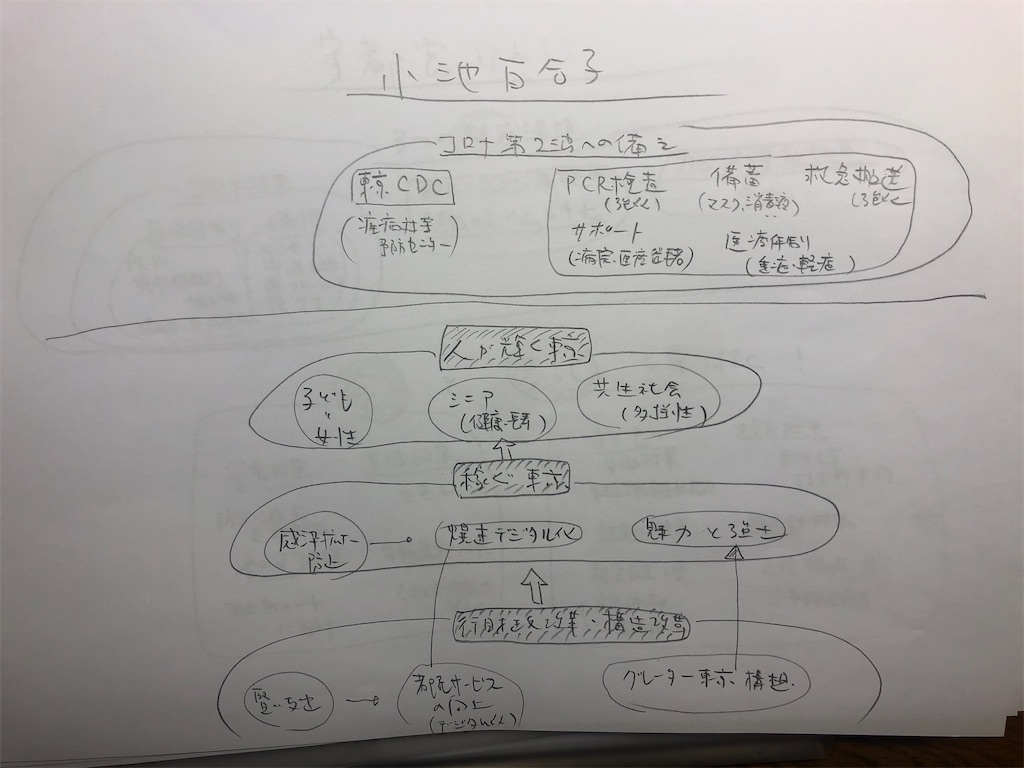 小池百合子
コロナ第2波への備え
東京CDC
(疾病対策
予防センター)
PCR検査
(強化)
備蓄
(マスク、消毒液)
救急搬送
(強化
サポート
(病院・医療従事者)
医療体制
(重症・軽症)
人が輝く東京
子ども
女性
シニア
(健康・長寿)
共生社会
(多様性)
稼ぐ東京
感染拡大
防止
爆速デジタル化
魅力と強士
行財政改革・構造改革
賢い支出
都民サービス
の向上
(デジタル化)
グレーター東京構想.